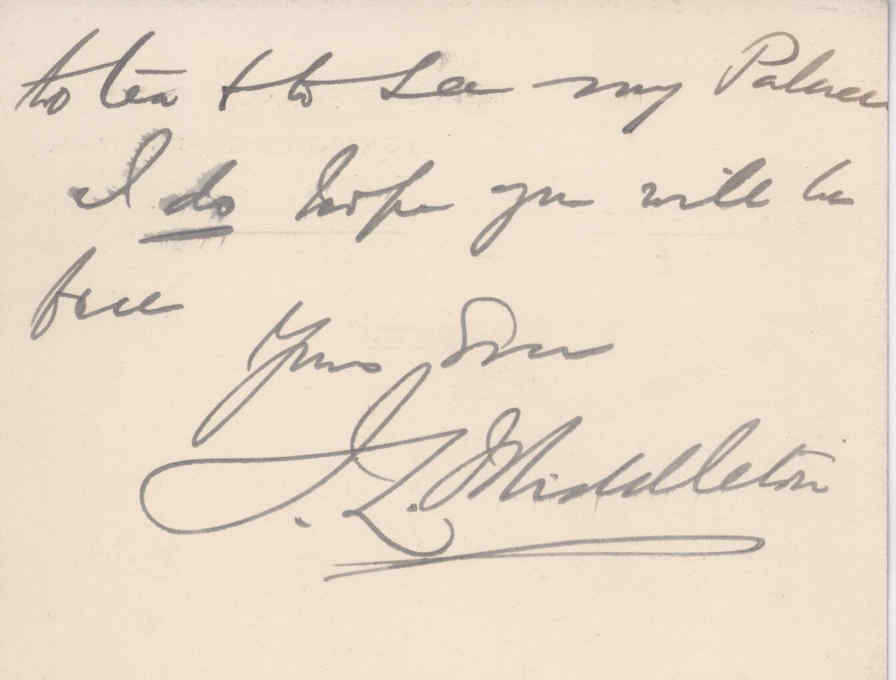 to tea & to see my Palace
I do hope you will be
free
Yours Ever
J. L. Middleton